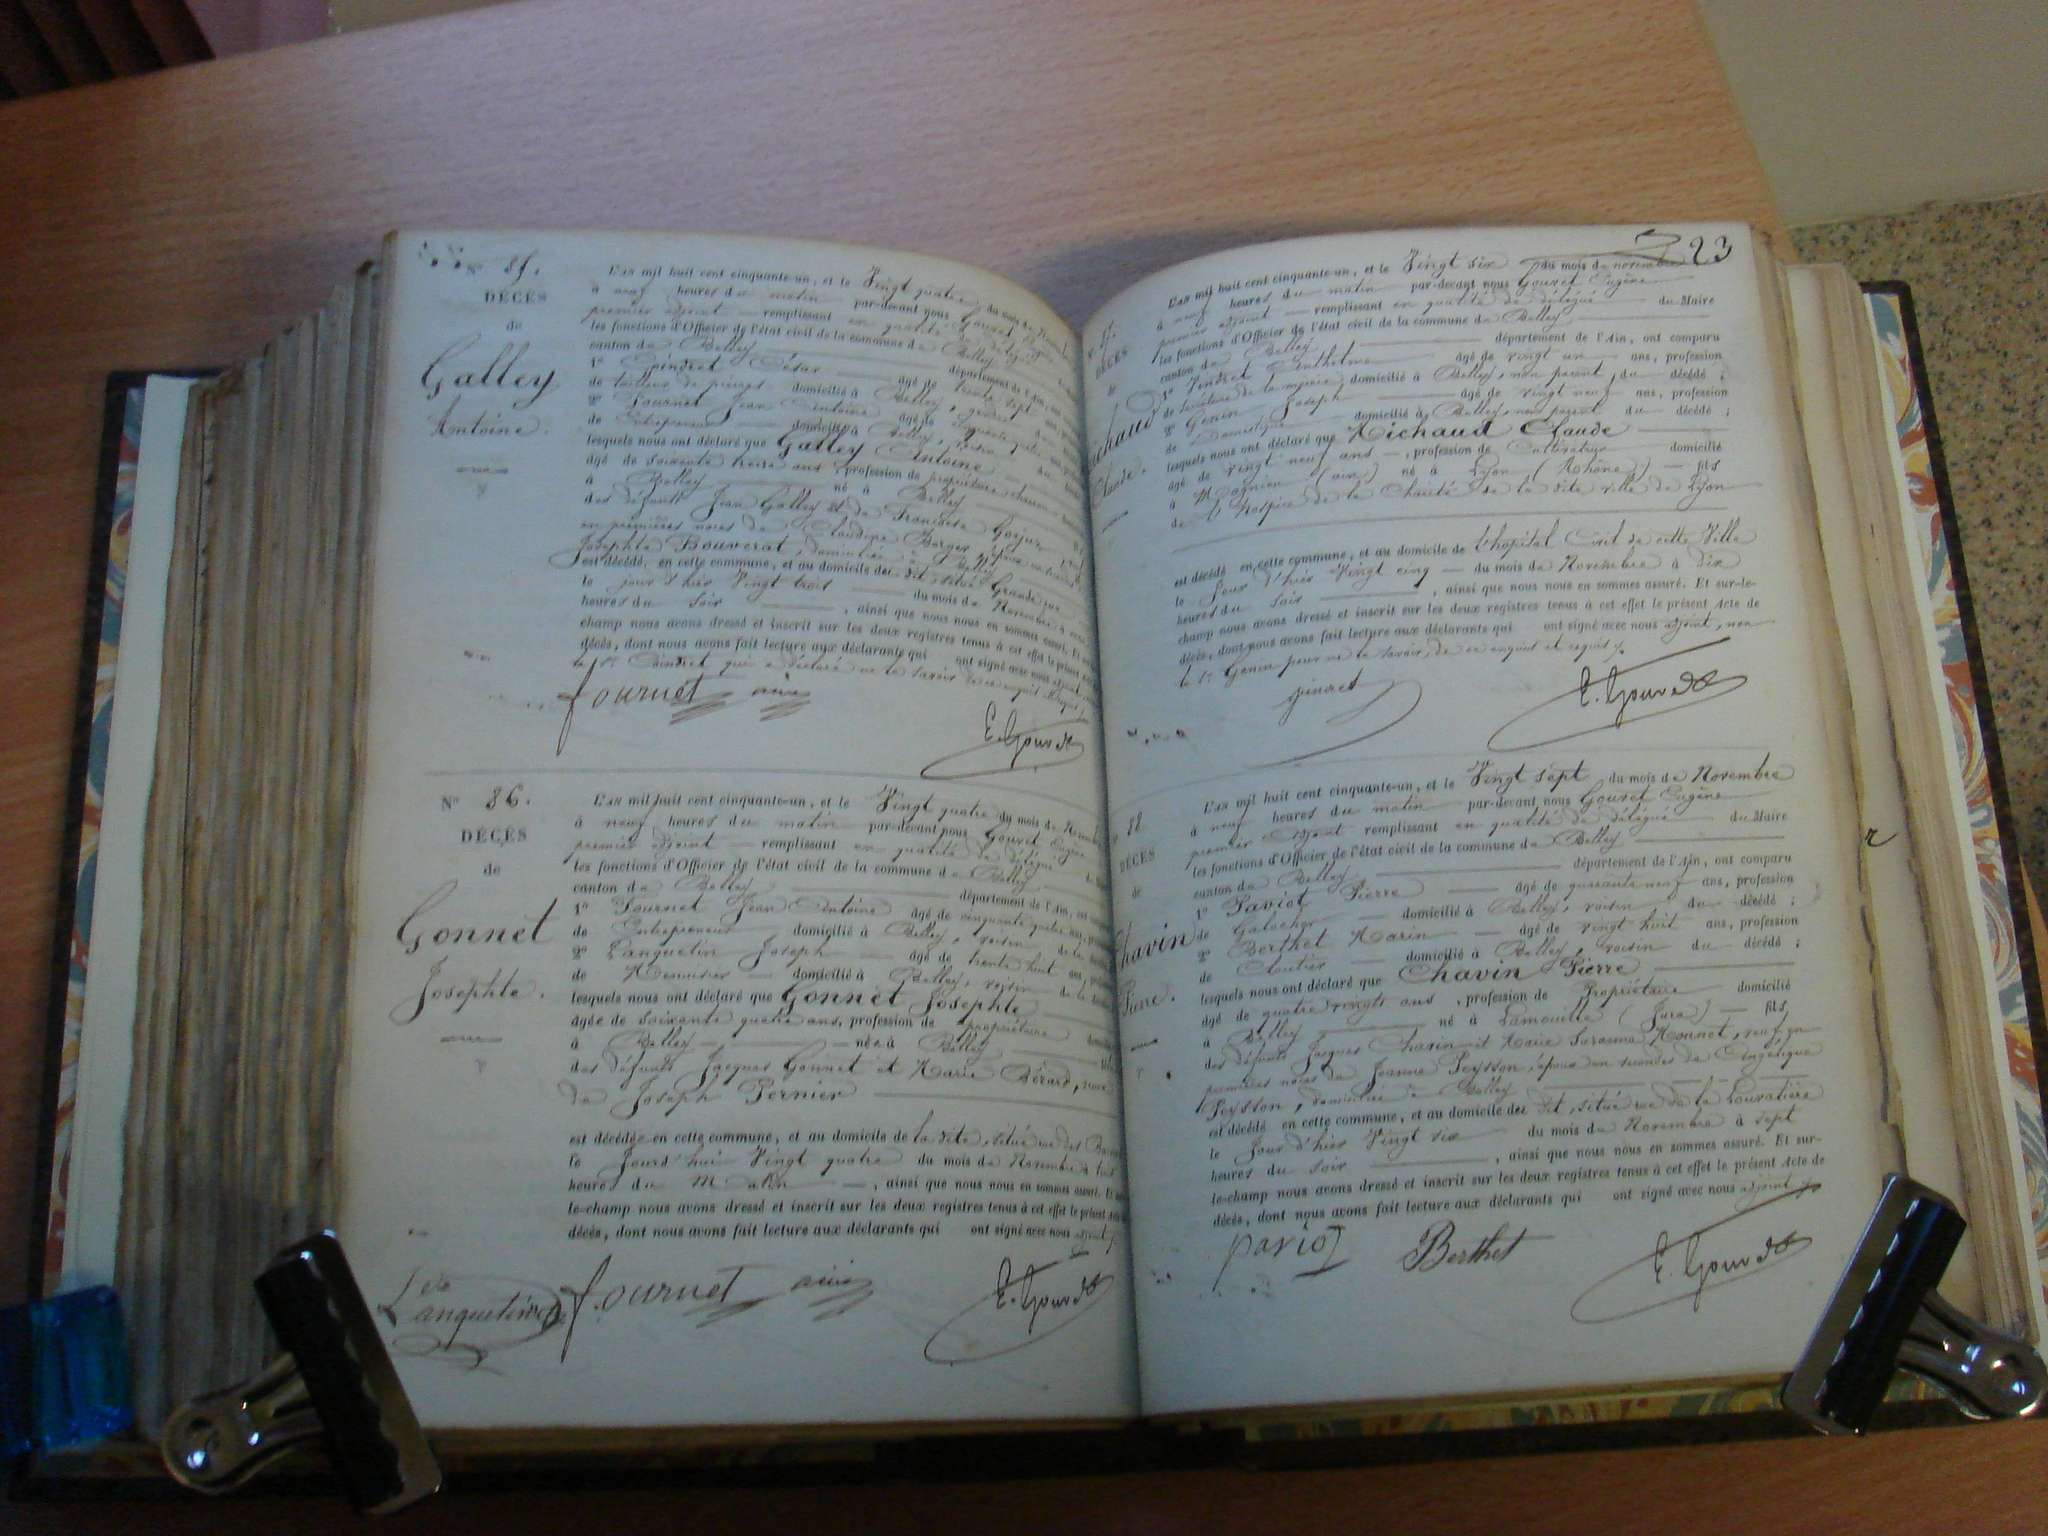 Nº 85.
DÉCÈS
de
Galley
Antoine.
L'AN mil huit cent cinquante-un, et le Vingt quatre du mois de
à neuf heures du matin par-devant nous Gouvet
premier adjoint remplissant en qualité de délégué
les fonctions d'Officier de l'état civil de la commune de Belley
canton de Belley département de l'Ain, ont
1º César âgé de trente sept
de tailleur de pierres domicilié à Belley,
2º Fournet Jean Antoine âgé de cinquante quatre
de Entrepreneur domicilié à Belley, voisin
lesquels nous ont déclaré que Galley Antoine
âgé de soixante treize ans, profession de propriétaire
à Belley né à Belley
des défunts Jean Galley et de Françoise
en premières noces de Claudine Berger, époux
Josephte Bouverat, domiciliée à Belley
est décédé, en cette commune, et au domicile du dit, situé Grande rue
le jour d'hier Vingt trois du mois de Novembre à
heures du soir , ainsi que nous nous en sommes assuré. Et
champ nous avons dressé et inscrit sur les deux registres tenus à cet effet le présent
décès, dont nous avons fait lecture aux déclarants qui ont signé avec nous adjoint
le Sr. Coindret qui a déclaré ne le savoir de ce enquis et requis
fournet ainé
E. Gouvet
Nº 86.
DÉCÈS
de
Gonnet
Josephte.
L'AN mil huit cent cinquante-un, et le Vingt quatre du mois de Novembre
à neuf heures du matin par-devant nous Gouvet Eugène
premier adjoint remplissant en qualité de délégué
les fonctions d'Officier de l'état civil de la commune de Belley
canton de Belley département de l'Ain, ont
1º Fournet Jean Antoine âgé de cinquante quatre ans,
de Entrepreneur domicilié à Belley, voisin de la
2º Lanquetin Joseph âgé de trente huit ans,
de Menuisier domicilié à Belley, voisin de la
lesquels nous ont déclaré que Gonnet Josephte
âgée de soixante quatre ans, profession de propriétaire
à Belley née à Belley
des défunts Jacques Gonnet et Marie Bérard, veuve
de Joseph Pernier
est décédée en cette commune, et au domicile de la dite, située rue des
le Jourd'hui Vingt quatre du mois de Novembre à
heures du Matin , ainsi que nous nous en sommes assuré. Et
le-champ nous avons dressé et inscrit sur les deux registres tenus à cet effet le présent
décès, dont nous avons fait lecture aux déclarants qui ont signé avec nous adjoint
Lanquetin fournet ainé E. Gouvet
23
DÉCÈS
de
Michaud
Claude.
L'AN mil huit cent cinquante-un, et le Vingt six du mois de novembre
à neuf heures du matin par-devant nous Gouvet Eugène
premier adjoint remplissant en qualité de délégué du Maire
les fonctions d'Officier de l'état civil de la commune de Belley
canton de Belley département de l'Ain, ont comparu
1º Anthelme âgé de vingt un ans, profession
de domicilié à Belley, non parent du décédé ;
2º Genin Joseph âgé de vingt neuf ans, profession
de Domestique domicilié à Belley, non parent du décédé ;
lesquels nous ont déclaré que Michaud Claude
âgé de vingt neuf ans , profession de Cultivateur domicilié
à Magnieu (ain) né à Lyon (Rhône) fils
de l'hospice de la Charité de la dite ville de Lyon
est décédé en cette commune, et au domicile de l'hopital Civil de cette Ville
le Jour d'hier Vingt cinq du mois de Novembre à dix
heures du soir , ainsi que nous nous en sommes assuré. Et sur-le-
champ nous avons dressé et inscrit sur les deux registres tenus à cet effet le présent Acte de
décès, dont nous avons fait lecture aux déclarants qui ont signé avec nous adjoint, non
le Sr. Genin pour ne le savoir, de ce enquis et requis
E. Gouvet
88
DÉCÈS
de
Chavin
Pierre.
L'AN mil huit cent cinquante-un, et le Vingt sept du mois de Novembre
à neuf heures du matin par-devant nous Gouvet Eugène
premier adjoint remplissant en qualité de délégué du Maire
les fonctions d'Officier de l'état civil de la commune de Belley
canton de Belley département de l'Ain, ont comparu
1º Paviot Pierre âgé de quarante neuf ans, profession
de Galocher domicilié à Belley, voisin du décédé ;
2º Berthet Marin âgé de vingt huit ans, profession
de Cloutier domicilié à Belley, voisin du décédé ;
lesquels nous ont déclaré que Chavin Pierre
âgé de quatre vingts ans , profession de Propriétaire domicilié
à Belley né à Lamouille (Jura) fils
des défunts Jacques Chavin et Marie Suzanne Monnet, veuf en
premières noces de Jeanne Peysson, époux en secondes de Angélique
Peysson, domiciliée à Belley
est décédé en cette commune, et au domicile du dit, situé rue de la Louvatière
le Jour d'hier Vingt six du mois de Novembre à sept
heures du soir , ainsi que nous nous en sommes assuré. Et sur-
le-champ nous avons dressé et inscrit sur les deux registres tenus à cet effet le présent Acte de
décès, dont nous avons fait lecture aux déclarants qui ont signé avec nous adjoint
paviot Berthet E. Gouvet